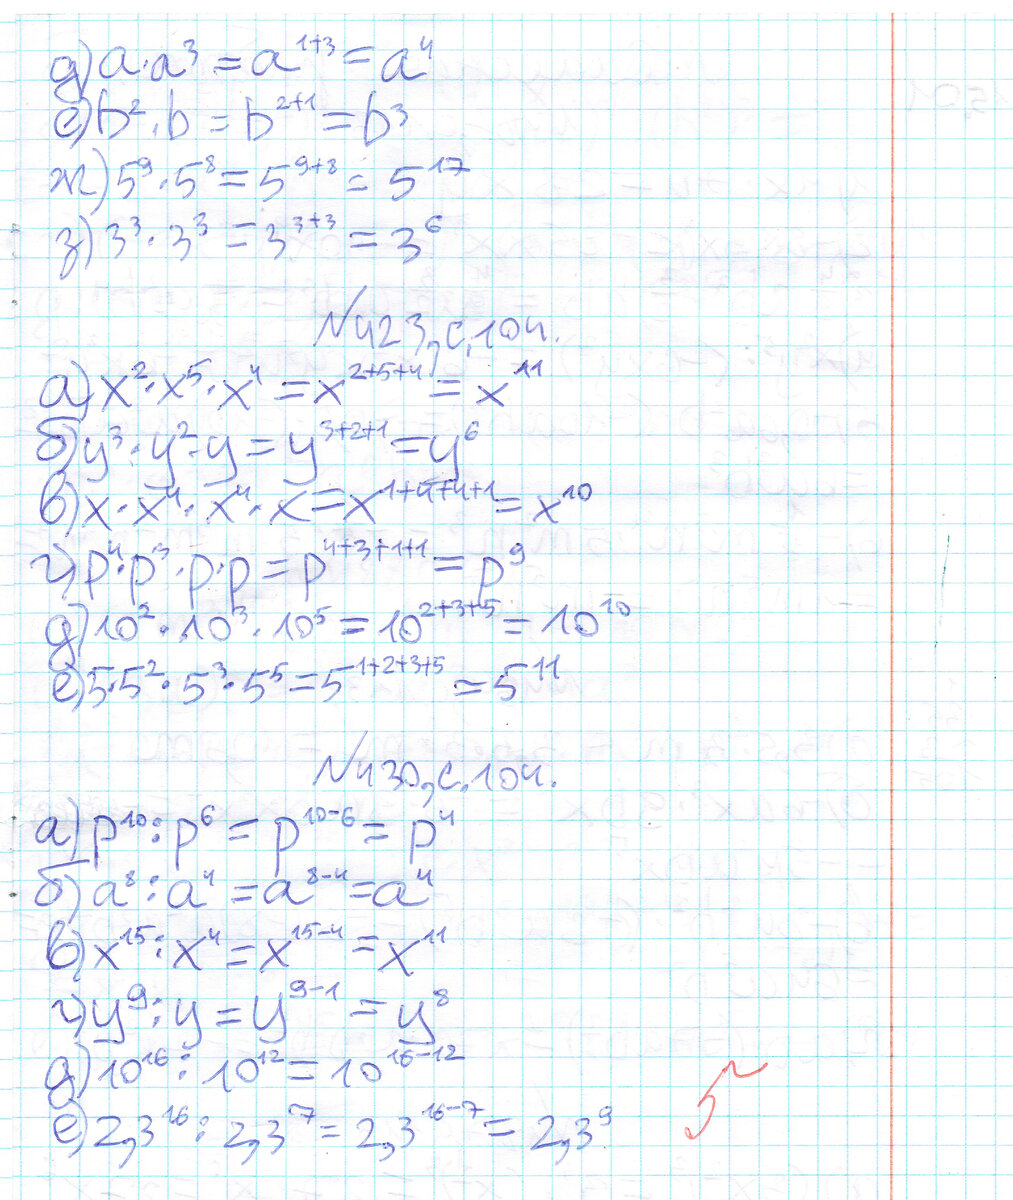 д) a·a³ = a¹⁺³ = a⁴
е) b²·b = b²⁺¹ = b³
ж) 5⁹·5⁸ = 5⁹⁺⁸ = 5¹⁷
з) 3³·3³ = 3³⁺³ = 3⁶
№423, с.104.
а) x²·x⁵·x⁴ = x²⁺⁵⁺⁴ = x¹¹
б) y³·y²·y = y³⁺²⁺¹ = y⁶
в) x·x⁴·x⁴·x = x¹⁺⁴⁺⁴⁺¹ = x¹⁰
г) p⁴·p³·p·p = p⁴⁺³⁺¹⁺¹ = p⁹
д) 10²·10³·10⁵ = 10²⁺³⁺⁵ = 10¹⁰
е) 5·5²·5³·5⁵ = 5¹⁺²⁺³⁺⁵ = 5¹¹
№430, с.104.
а) p¹⁰:p⁶ = p¹⁰⁻⁶ = p⁴
б) a⁸:a⁴ = a⁸⁻⁴ = a⁴
в) x¹⁵:x⁴ = x¹⁵⁻⁴ = x¹¹
г) y⁹:y = y⁹⁻¹ = y⁸
д) 10¹⁶:10¹² = 10¹⁶⁻¹²
е) 2,3¹⁶:2,3⁷ = 2,3¹⁶⁻⁷ = 2,3⁹
5